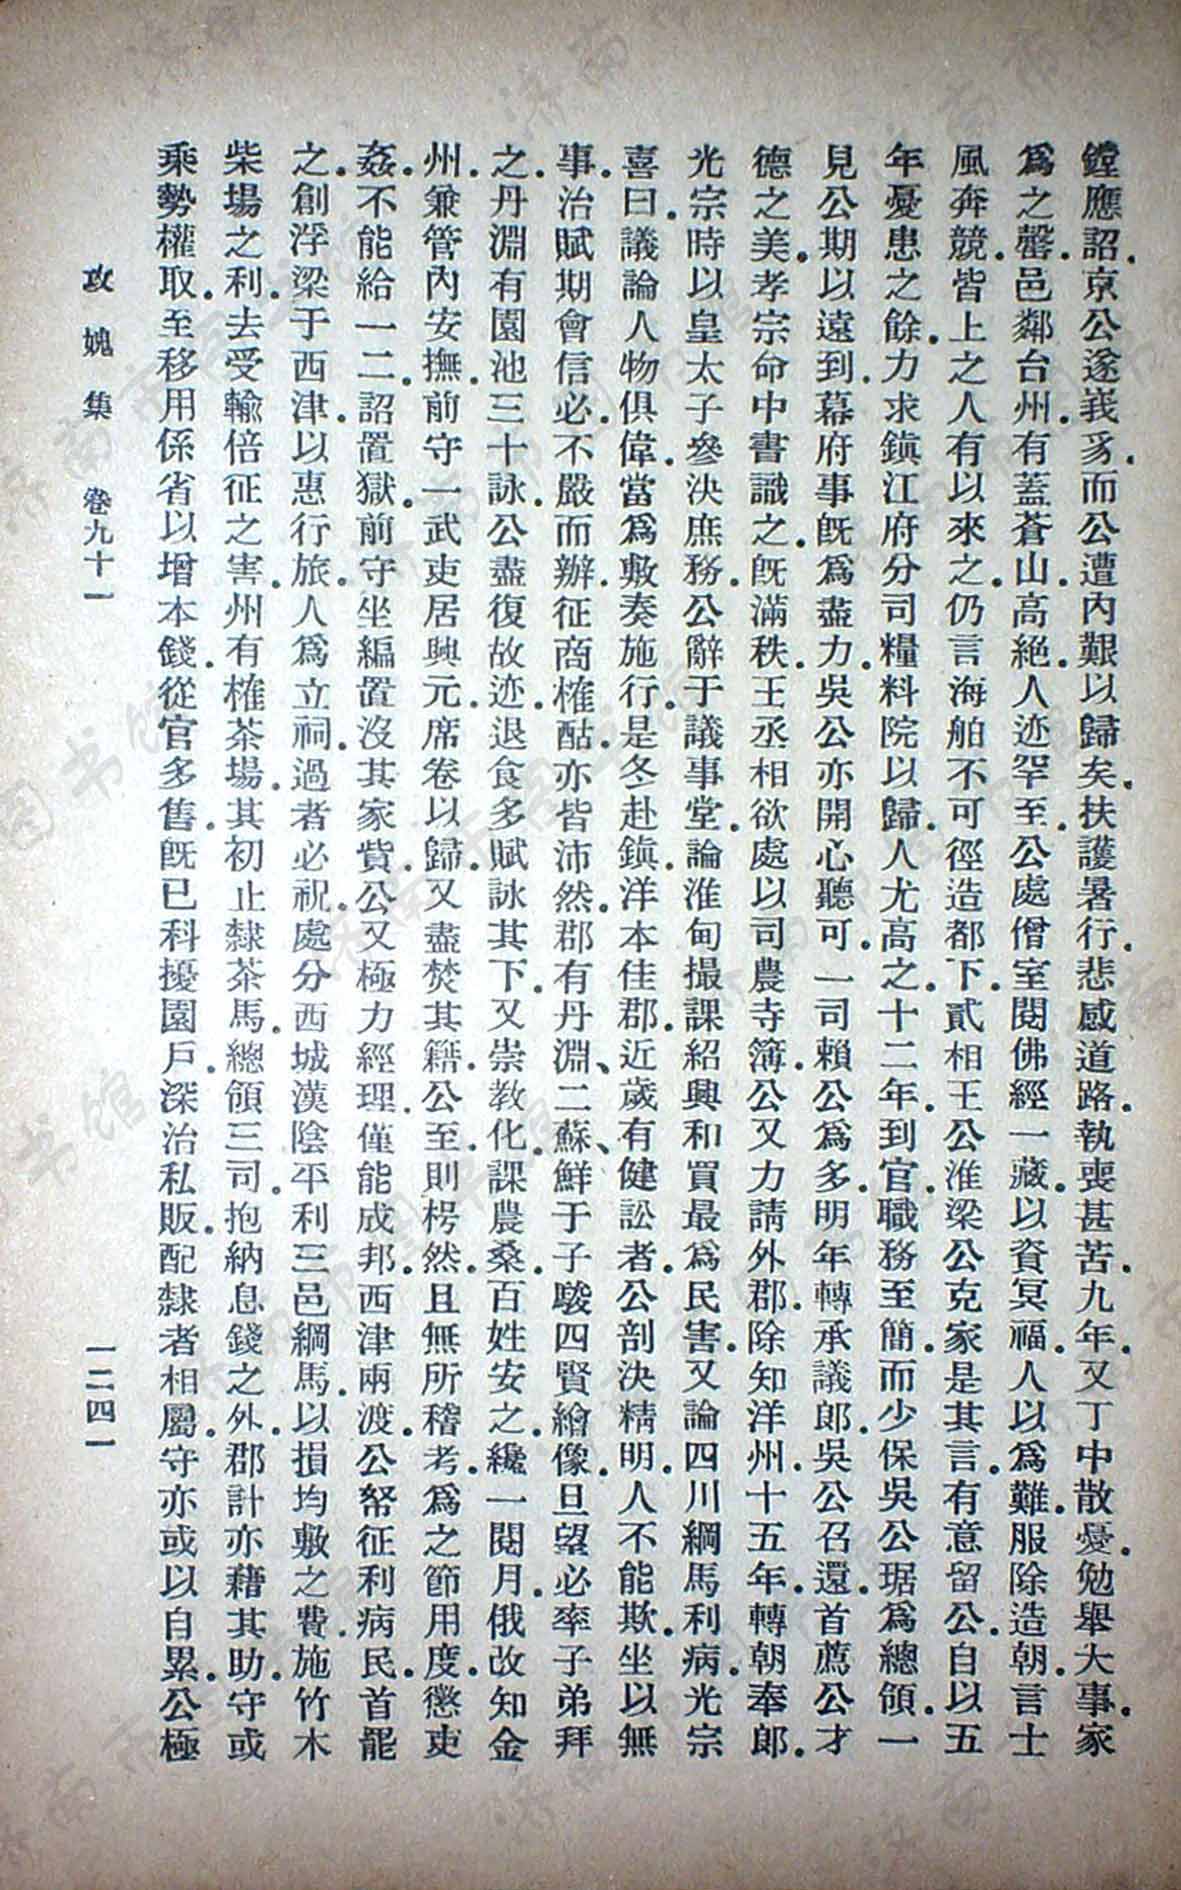 鏜應詔.京公遂峩豸.而公遭內艱以歸矣.扶護暑行.悲感道路.執喪甚苦.九年.又丁中散憂.勉舉大事.家
爲之罄.邑鄰台州.有蓋蒼山.高絕.人迹罕至.公處僧室閱佛經一藏.以資冥福.人以爲難.服除造朝.言士
風奔競.皆上之人有以來之.仍言海舶不可徑造都下.貳相王公淮梁公克家是其言.有意留公.自以五
年憂患之餘.力求鎭江府分司糧料院以歸.人尤高之.十二年.到官.職務至簡.而少保吳公琚爲總領.一
見公期以遠到.幕府事旣爲盡力.吳公亦開心聽可.一司賴公爲多.明年轉承議郎.吳公召還.首薦公才
德之美.孝宗命中書識之.旣滿秩.王丞相欲處以司農寺簿.公又力請外郡.除知洋州.十五年.轉朝奉郎.
光宗時以皇太子參決庶務.公辭于議事堂.論淮甸撮課紹興和買最爲民害.又論四川綱馬利病.光宗
喜曰.議論人物俱偉.當爲敷奏施行.是冬赴鎭.洋本佳郡.近歲有健訟者.公剖決精明.人不能欺.坐以無
事.治賦期會信必.不嚴而辦.征商榷酤.亦皆沛然.郡有丹淵、二蘇、鮮于子駿四賢繪像.旦望必率子弟拜
之.丹淵有園池三十詠.公盡復故迹.退食多賦詠其下.又崇教化.課農桑.百姓安之.纔一閱月.俄改知金
州.兼管內安撫.前守一武吏居興元.席卷以歸.又盡焚其籍.公至.則枵然.且無所稽考.爲之節用度.懲吏
姦.不能給一二.詔置獄.前守坐編置沒其家貲.公又極力經理.僅能成邦.西津兩渡.公帑征利病民.首罷
之.創浮梁于西津.以惠行旅.人爲立祠.過者必祝.處分西城漢陰平利三邑綱馬.以損均敷之費.施竹木
柴場之利.去受輸倍征之害.州有榷茶場.其初止隸茶馬.總領三司.抱納息錢之外.郡計亦藉其助.守或
乘勢權取.至移用係省以增本錢.從官多售.旣已科擾園戶.深治私販.配隸者相屬.守亦或以自累.公極
攻媿集 卷九十一 一二四一